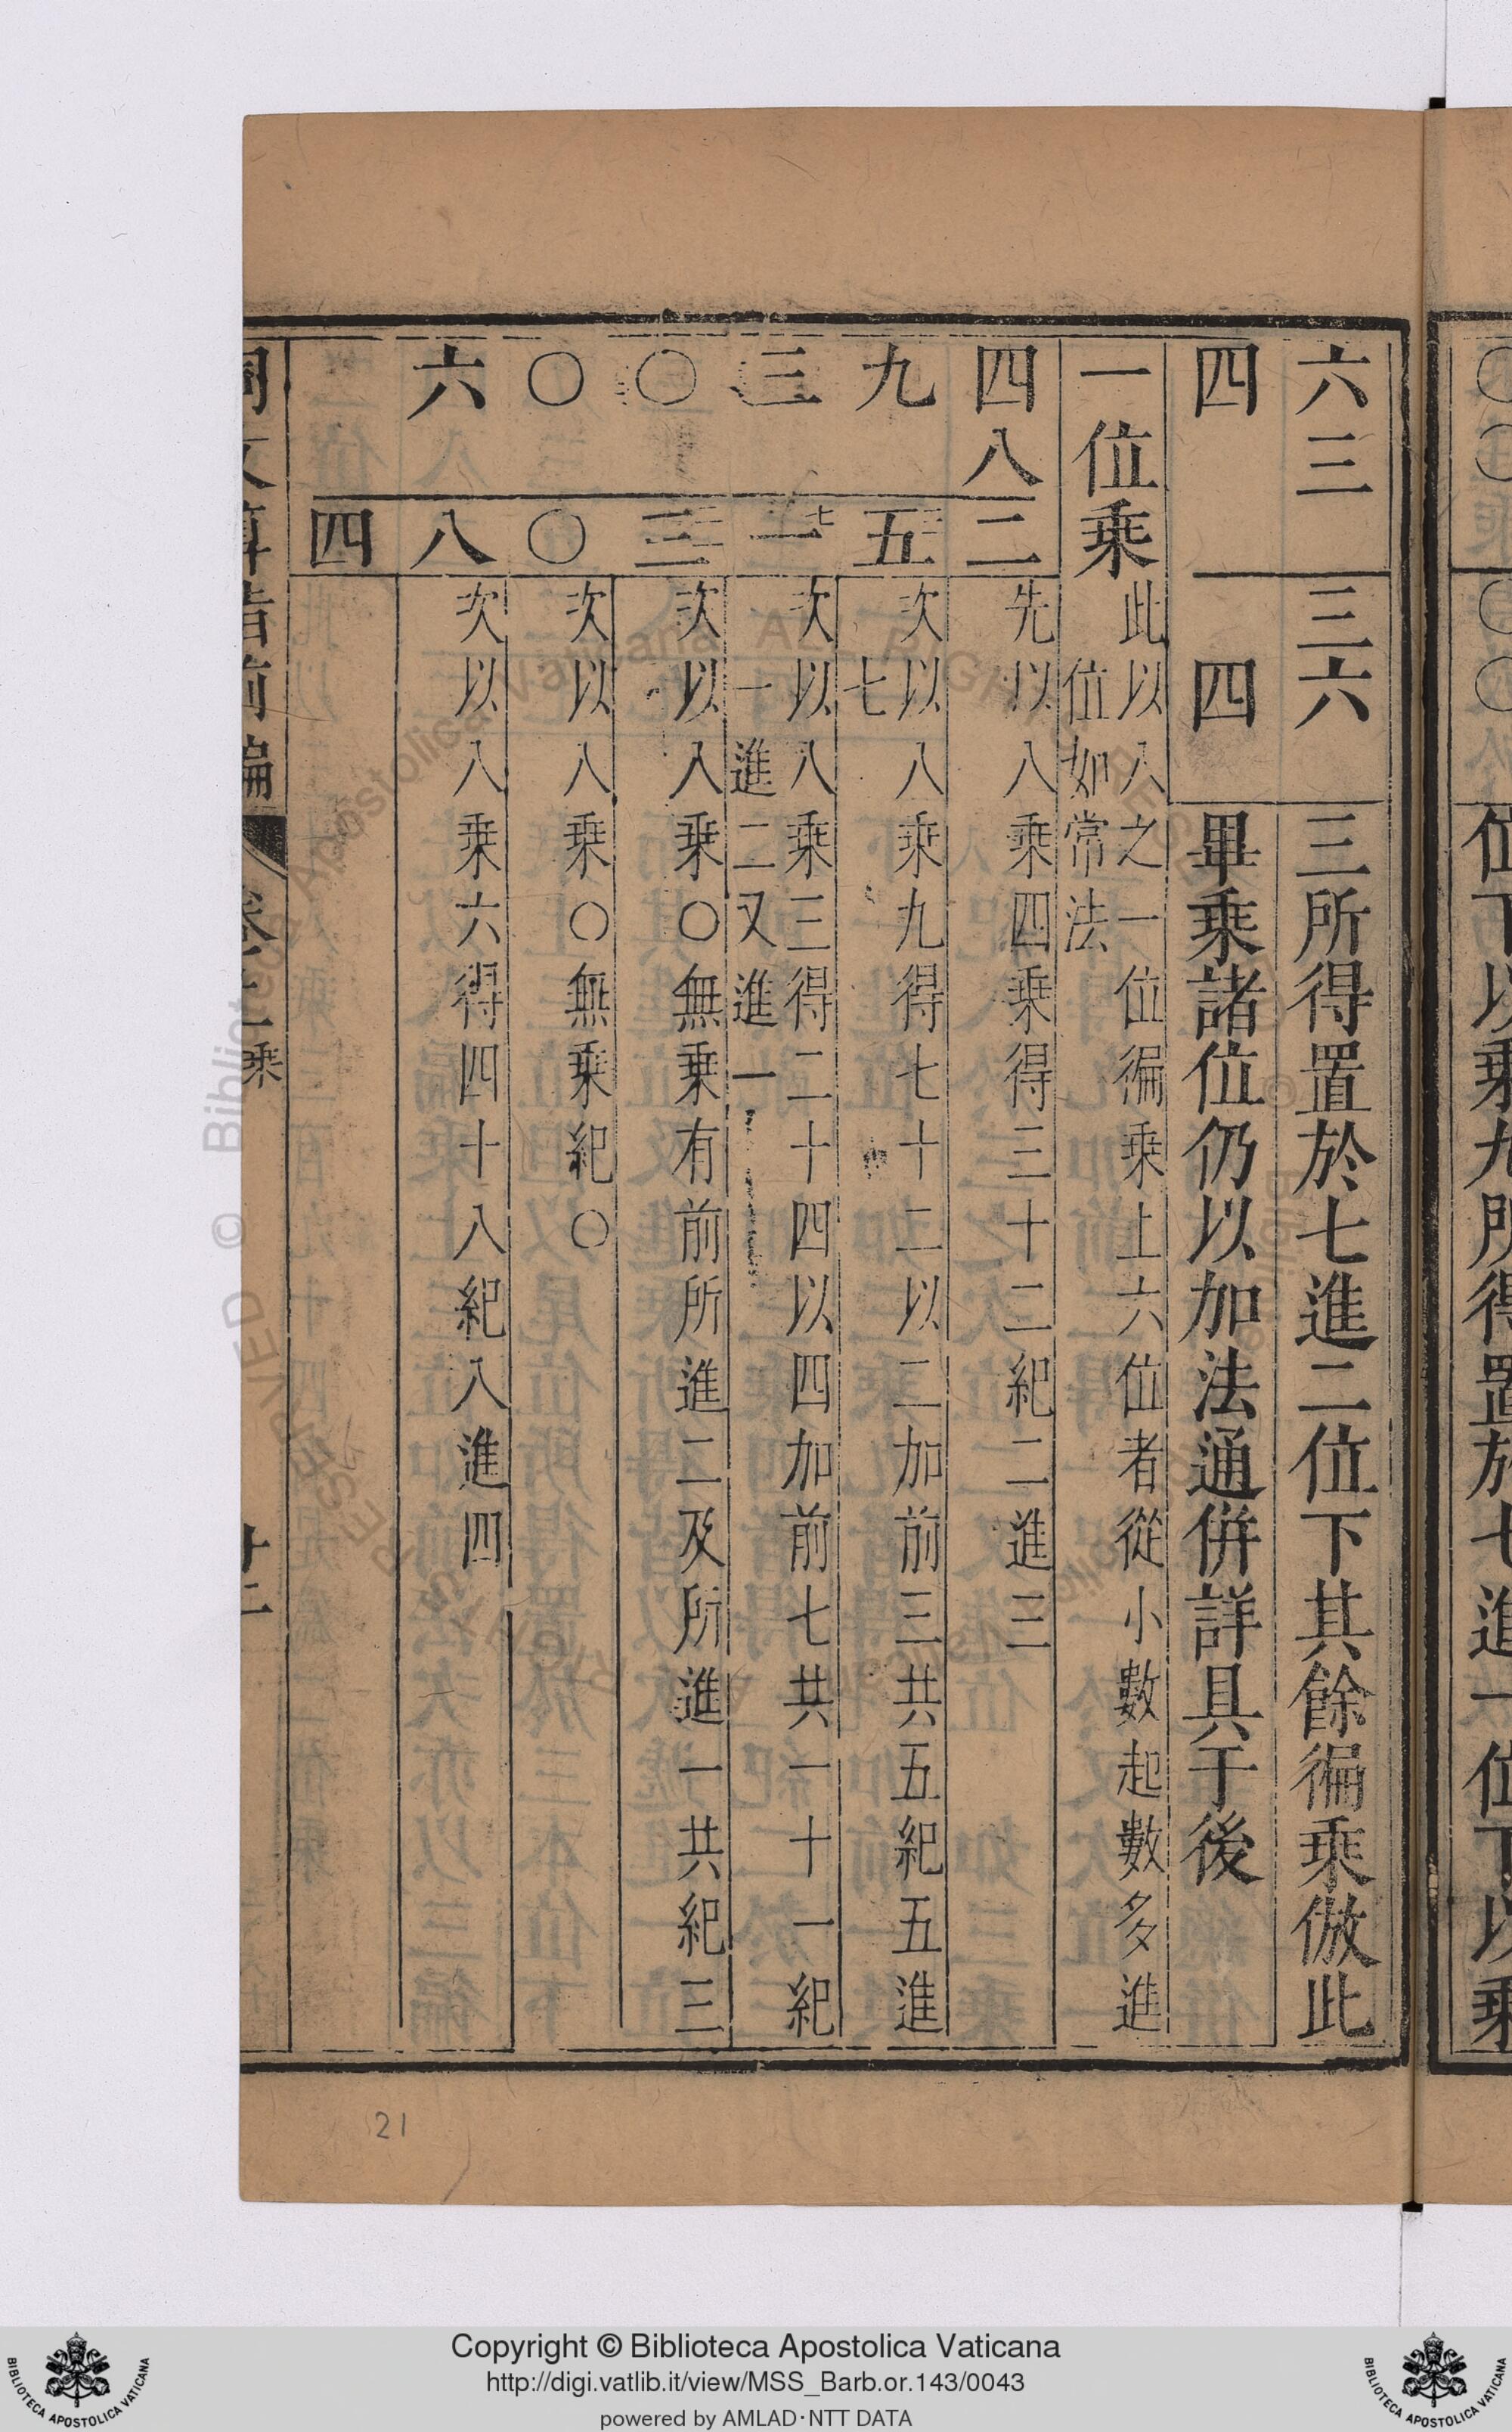 六三　三六　三所得置於七進二位下其餘徧乘倣此
四　四　畢乘諸位仍以加法通併詳具于後
一位乘　此以八之一位徧乘上六位者從小數起數多進
位如常法
四八二　先以八乘四乘得三十二紀二進三
九　五　次以八乘九得七十二以二加前三共五紀五進
七
三　一七　次以八乘三得二十四以四加前七共一十一紀
一進二又進一
〇　三　次以八乘〇無乘有前所進二及所進一共紀三
〇　〇　次以八乘〇無乘紀〇
六　八　次以八乘六得四十八紀八進四
四
乘
21
Copyright © Biblioteca Apostolica Vaticana
http://digi.vatlib.it/view/MSS_Barb.or.143/0043
powered by AMLAD·NTT DATA
BIBLIOTECA APOSTOLICA VATICANA
BIBLIOTECA APOSTOLICA VATICANA